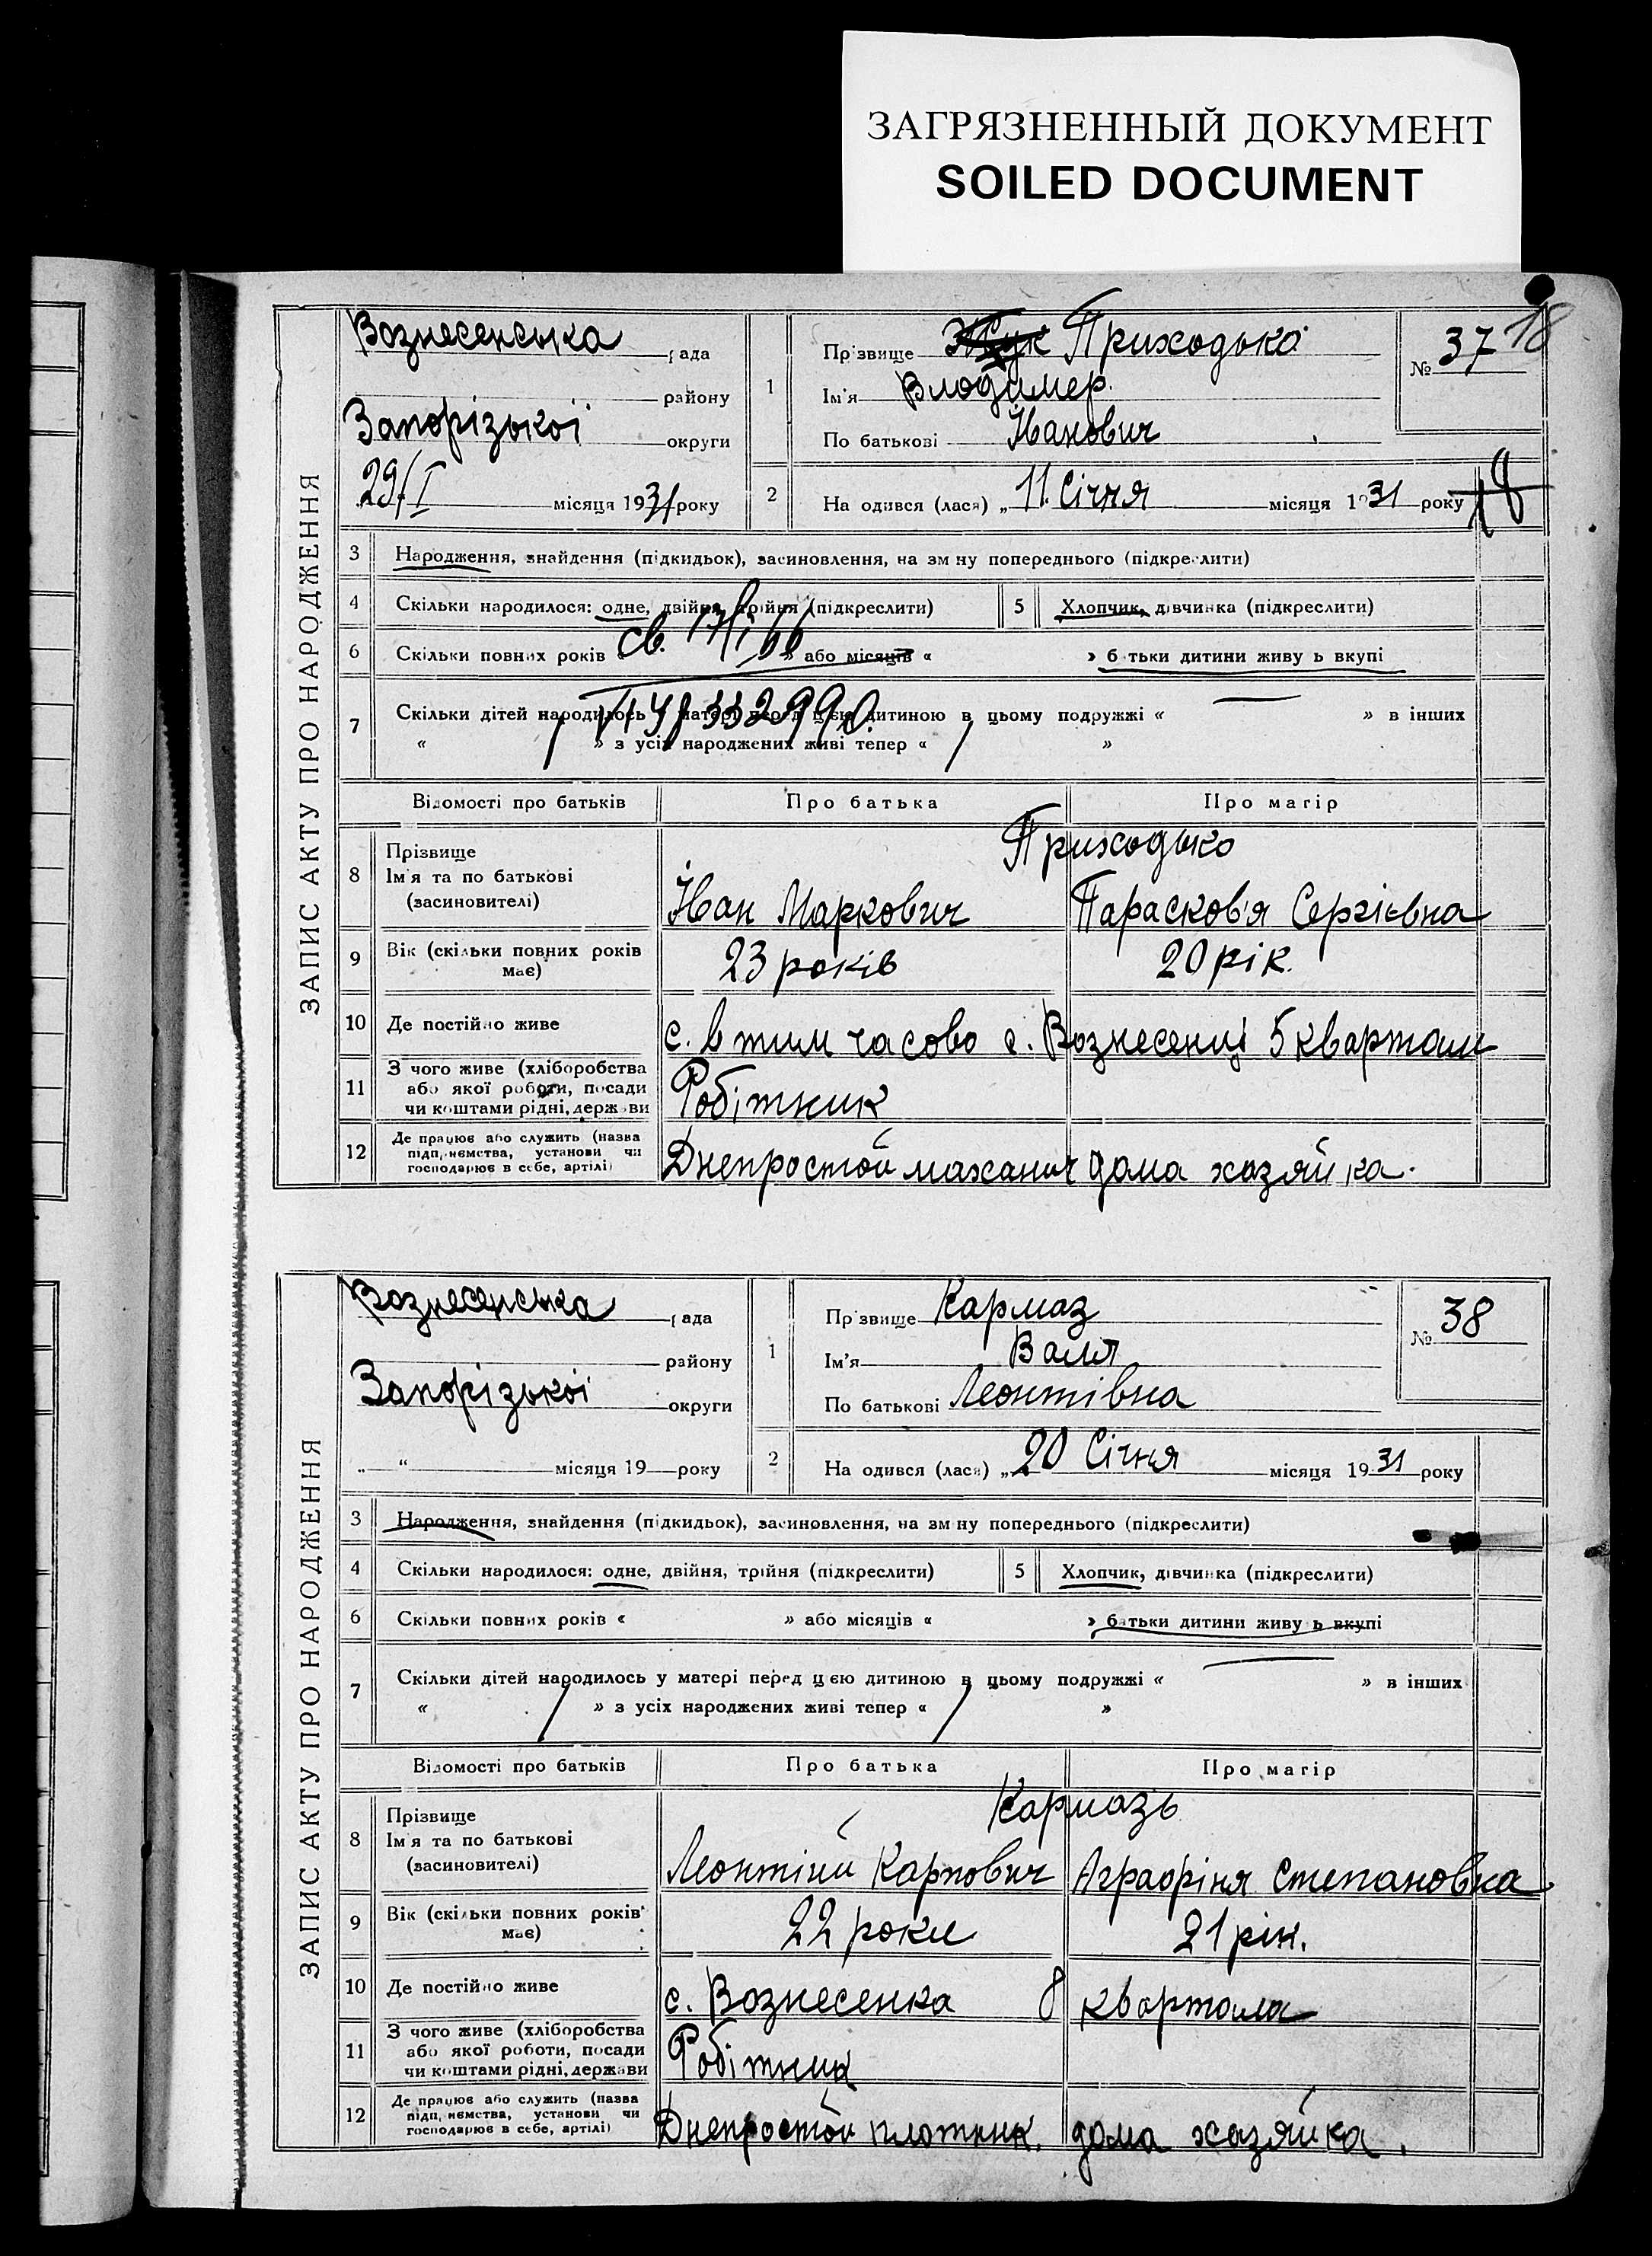 ЗАГРЯЗНЕННЫЙ ДОКУМЕНТ
SOILED DOCUMENT
18
ЗАПИС АКТУ ПРО НАРОДЖЕННЯ
Вознесенська рада
району
Запорізької округи
29/I місяця 1931 року
1 Прізвище Приходько
Ім'я Влодимер
По батькові Іванович
№ 37
2 Народився (лася) „ 11. Січня місяця 1931 року
18
3 Народження, знайдення (підкидьок), засиновлення, на зміну попереднього (підкреслити)
4 Скільки народилося: одне, двійня, трійня (підкреслити) 5 Хлопчик, дівчинка (підкреслити)
6 Скільки повних років « » або місяців « » батьки дитини живуть вкупі
св. 17/I 66
7 Скільки дітей народилось у матері перед цією дитиною в цьому подружжі « — » в інших
« » з усіх народжених живі тепер « »
Відомості про батьків Про батька Про матір
Приходько
8 Прізвище
Ім'я та по батькові
(засиновителі)
Іван Маркович Парасковія Сергієвна
9 Вік (скільки повних років має) 23 років 20 рік.
10 Де постійно живе с. в тим часово с. Вознесенці 5 квартали
11 З чого живе (хліборобства
або якої роботи, посади
чи коштами рідні, держави
Робітник
12 Де працює або служить (назва
підприємства, установи чи
господарює в себе, артілі)
Днепростой маханич дома хазяйка.
ЗАПИС АКТУ ПРО НАРОДЖЕННЯ
Вознесенська рада
району
Запорізької округи
„ “ місяця 19 року
1 Прізвище Кармаз
Ім'я Валя
По батькові Леонтівна
№ 38
2 Народився (лася) „ 20 Січня місяця 1931 року
3 Народження, знайдення (підкидьок), засиновлення, на зміну попереднього (підкреслити)
4 Скільки народилося: одне, двійня, трійня (підкреслити) 5 Хлопчик, дівчинка (підкреслити)
6 Скільки повних років « » або місяців « » батьки дитини живуть вкупі
7 Скільки дітей народилось у матері перед цією дитиною в цьому подружжі « — » в інших
« » з усіх народжених живі тепер « »
Відомості про батьків Про батька Про матір
Кармазь
8 Прізвище
Ім'я та по батькові
(засиновителі)
Леонтій Карпович Аграфіня Степановна
9 Вік (скільки повних років має) 22 роки 21 рік.
10 Де постійно живе с. Вознесенка 8 квартала
11 З чого живе (хліборобства
або якої роботи, посади
чи коштами рідні, держави
Робітник
12 Де працює або служить (назва
підприємства, установи чи
господарює в себе, артілі)
Днепростой плотник. дома хазяйка.